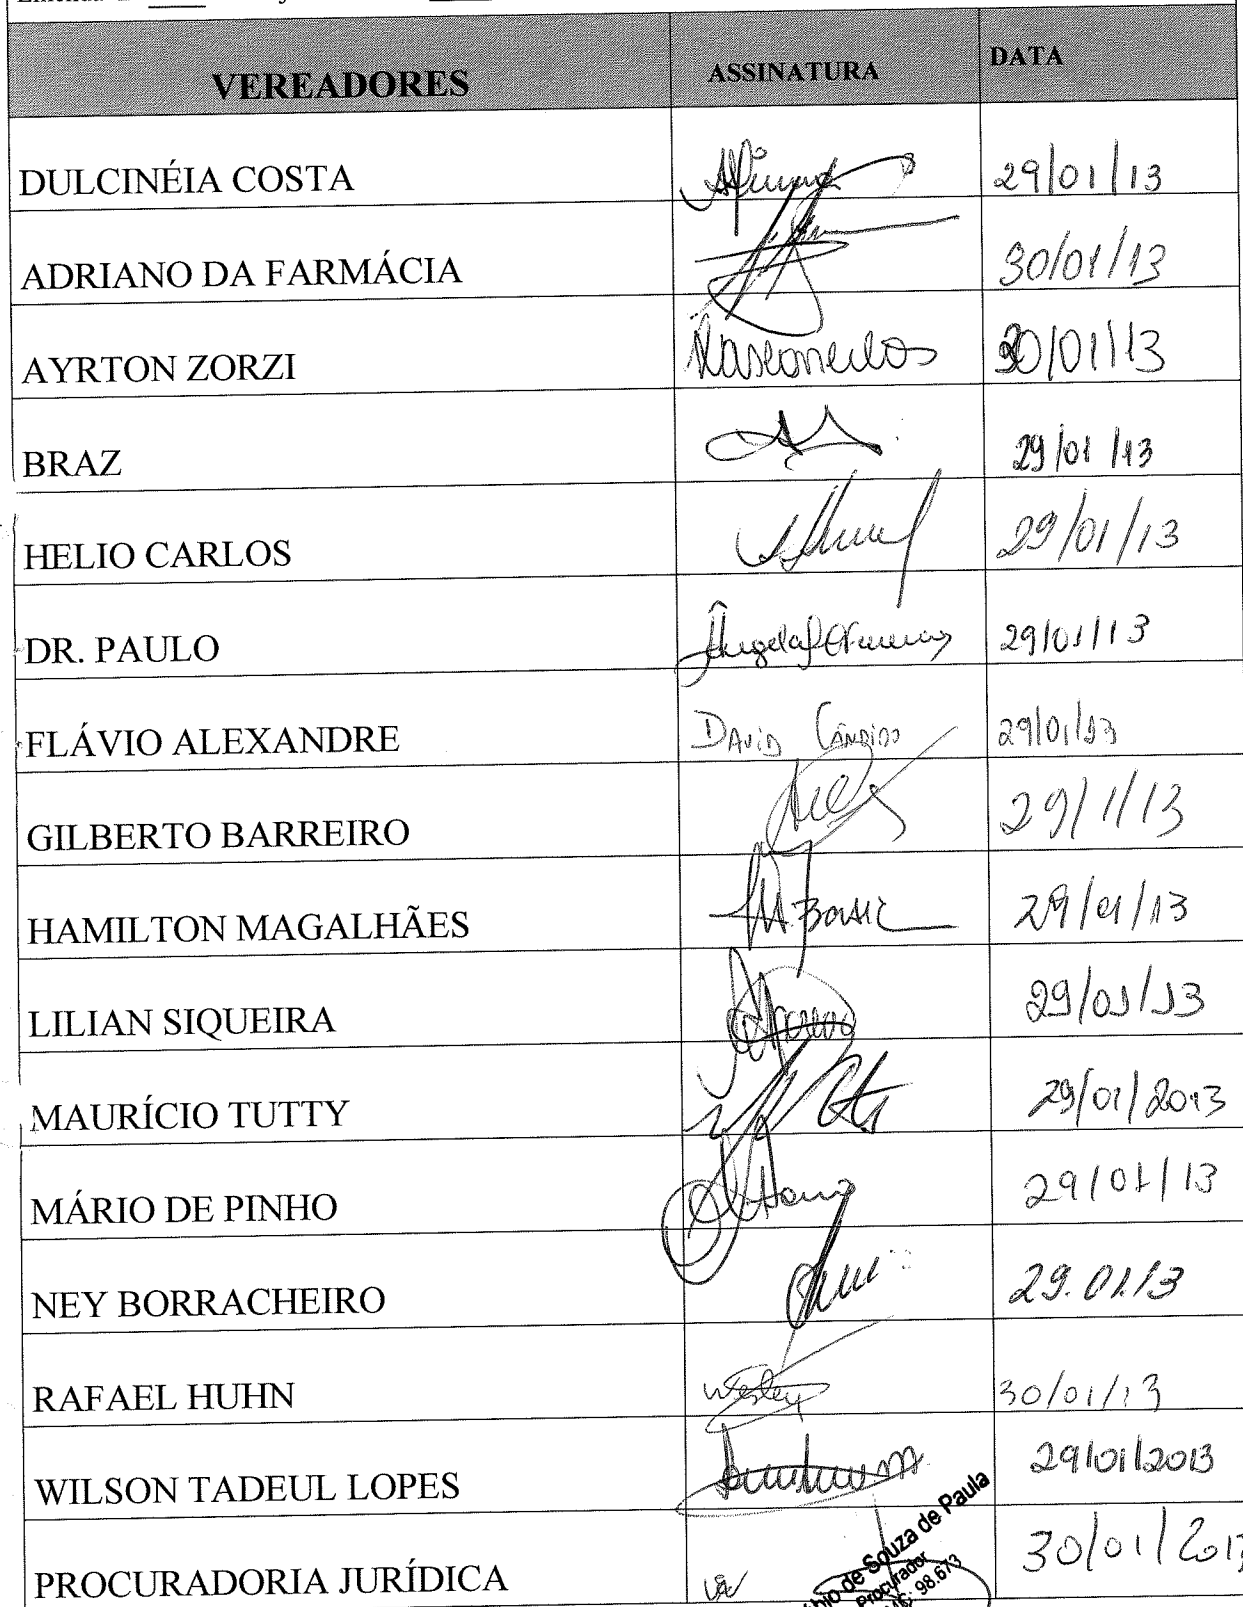 VEREADORES ASSINATURA DATA
DULCINÉIA COSTA 29/01/13
ADRIANO DA FARMÁCIA 30/01/13
AYRTON ZORZI Vasconcelos 30/01/13
BRAZ 29/01/13
HELIO CARLOS 29/01/13
DR. PAULO 29/01/13
FLÁVIO ALEXANDRE DAVID CÂNDIDO 29/01/13
GILBERTO BARREIRO 29/1/13
HAMILTON MAGALHÃES 29/01/13
LILIAN SIQUEIRA 29/01/13
MAURÍCIO TUTTY 29/01/2013
MÁRIO DE PINHO 29/01/13
NEY BORRACHEIRO 29.01.13
RAFAEL HUHN Wesley 30/01/13
WILSON TADEUL LOPES 29/01/2013
PROCURADORIA JURÍDICA 30/01/2013
de Souza de Paula
Procurador
98.673